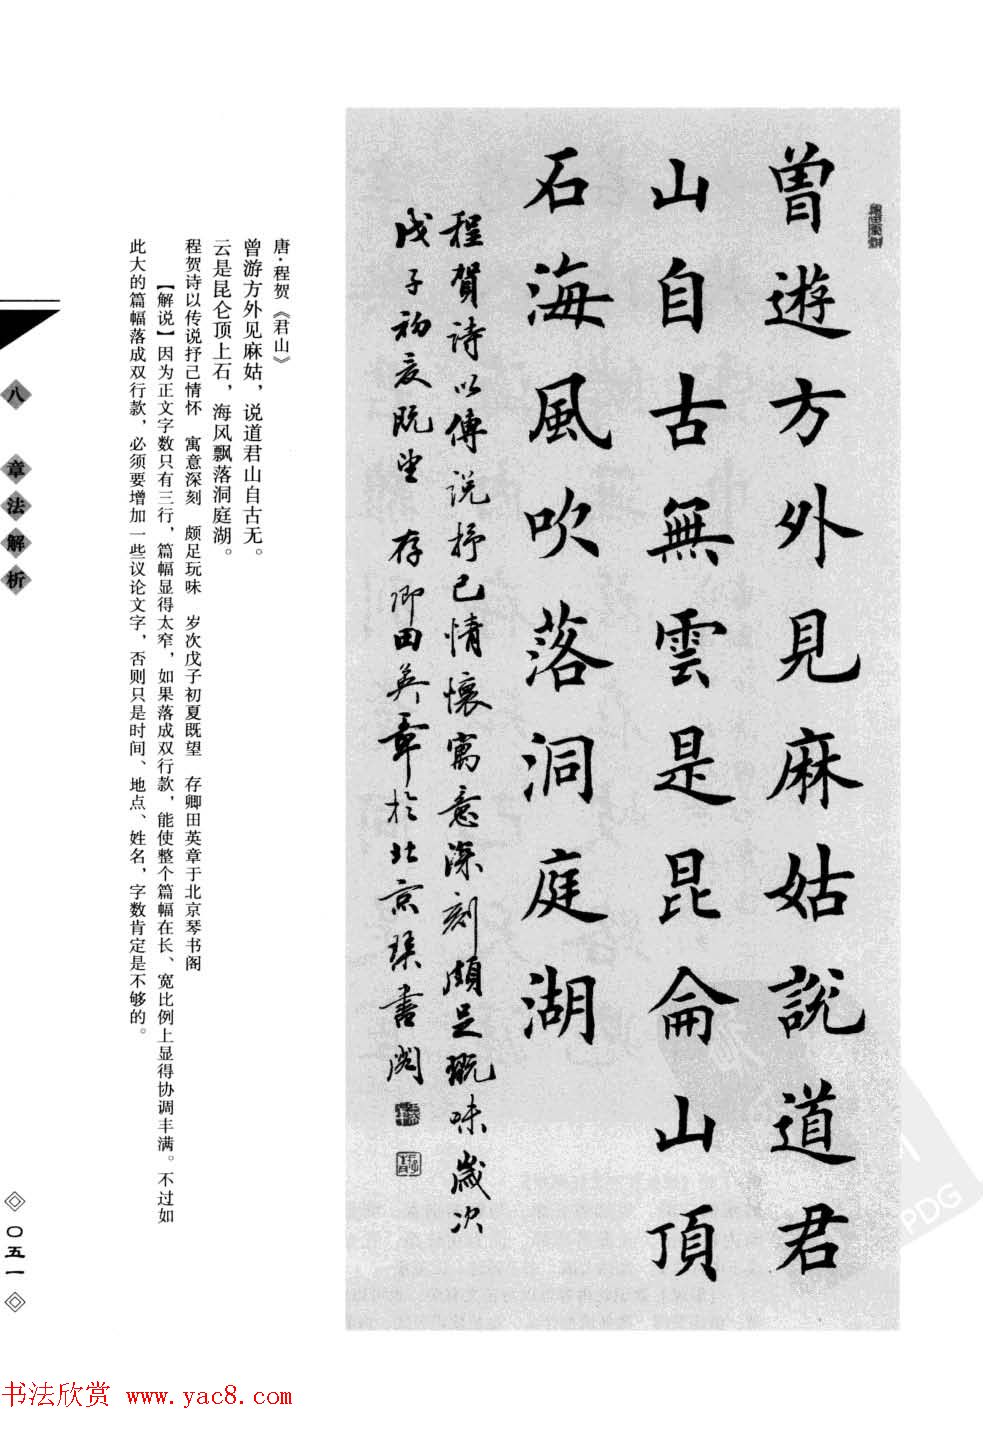 曾遊方外見麻姑說道君
山自古無雲是昆侖山頂
石海風吹落洞庭湖
程賀詩以傳說抒己情懷寓意深刻頗足玩味歲次
戊子初夏既望 存卿田英章於北京琴書閣
唐·程贺《君山》
曾游方外见麻姑，说道君山自古无。
云是昆仑顶上石，海风飘落洞庭湖。
程贺诗以传说抒己情怀 寓意深刻 颇足玩味 岁次戊子初夏既望 存卿田英章于北京琴书阁
【解说】因为正文字数只有三行，篇幅显得太窄，如果落成双行款，能使整个篇幅在长、宽比例上显得协调丰满。不过如
此大的篇幅落成双行款，必须要增加一些议论文字，否则只是时间、地点、姓名，字数肯定是不够的。
八 章法解析
〇五一
PDG
书法欣赏 www.yac8.com